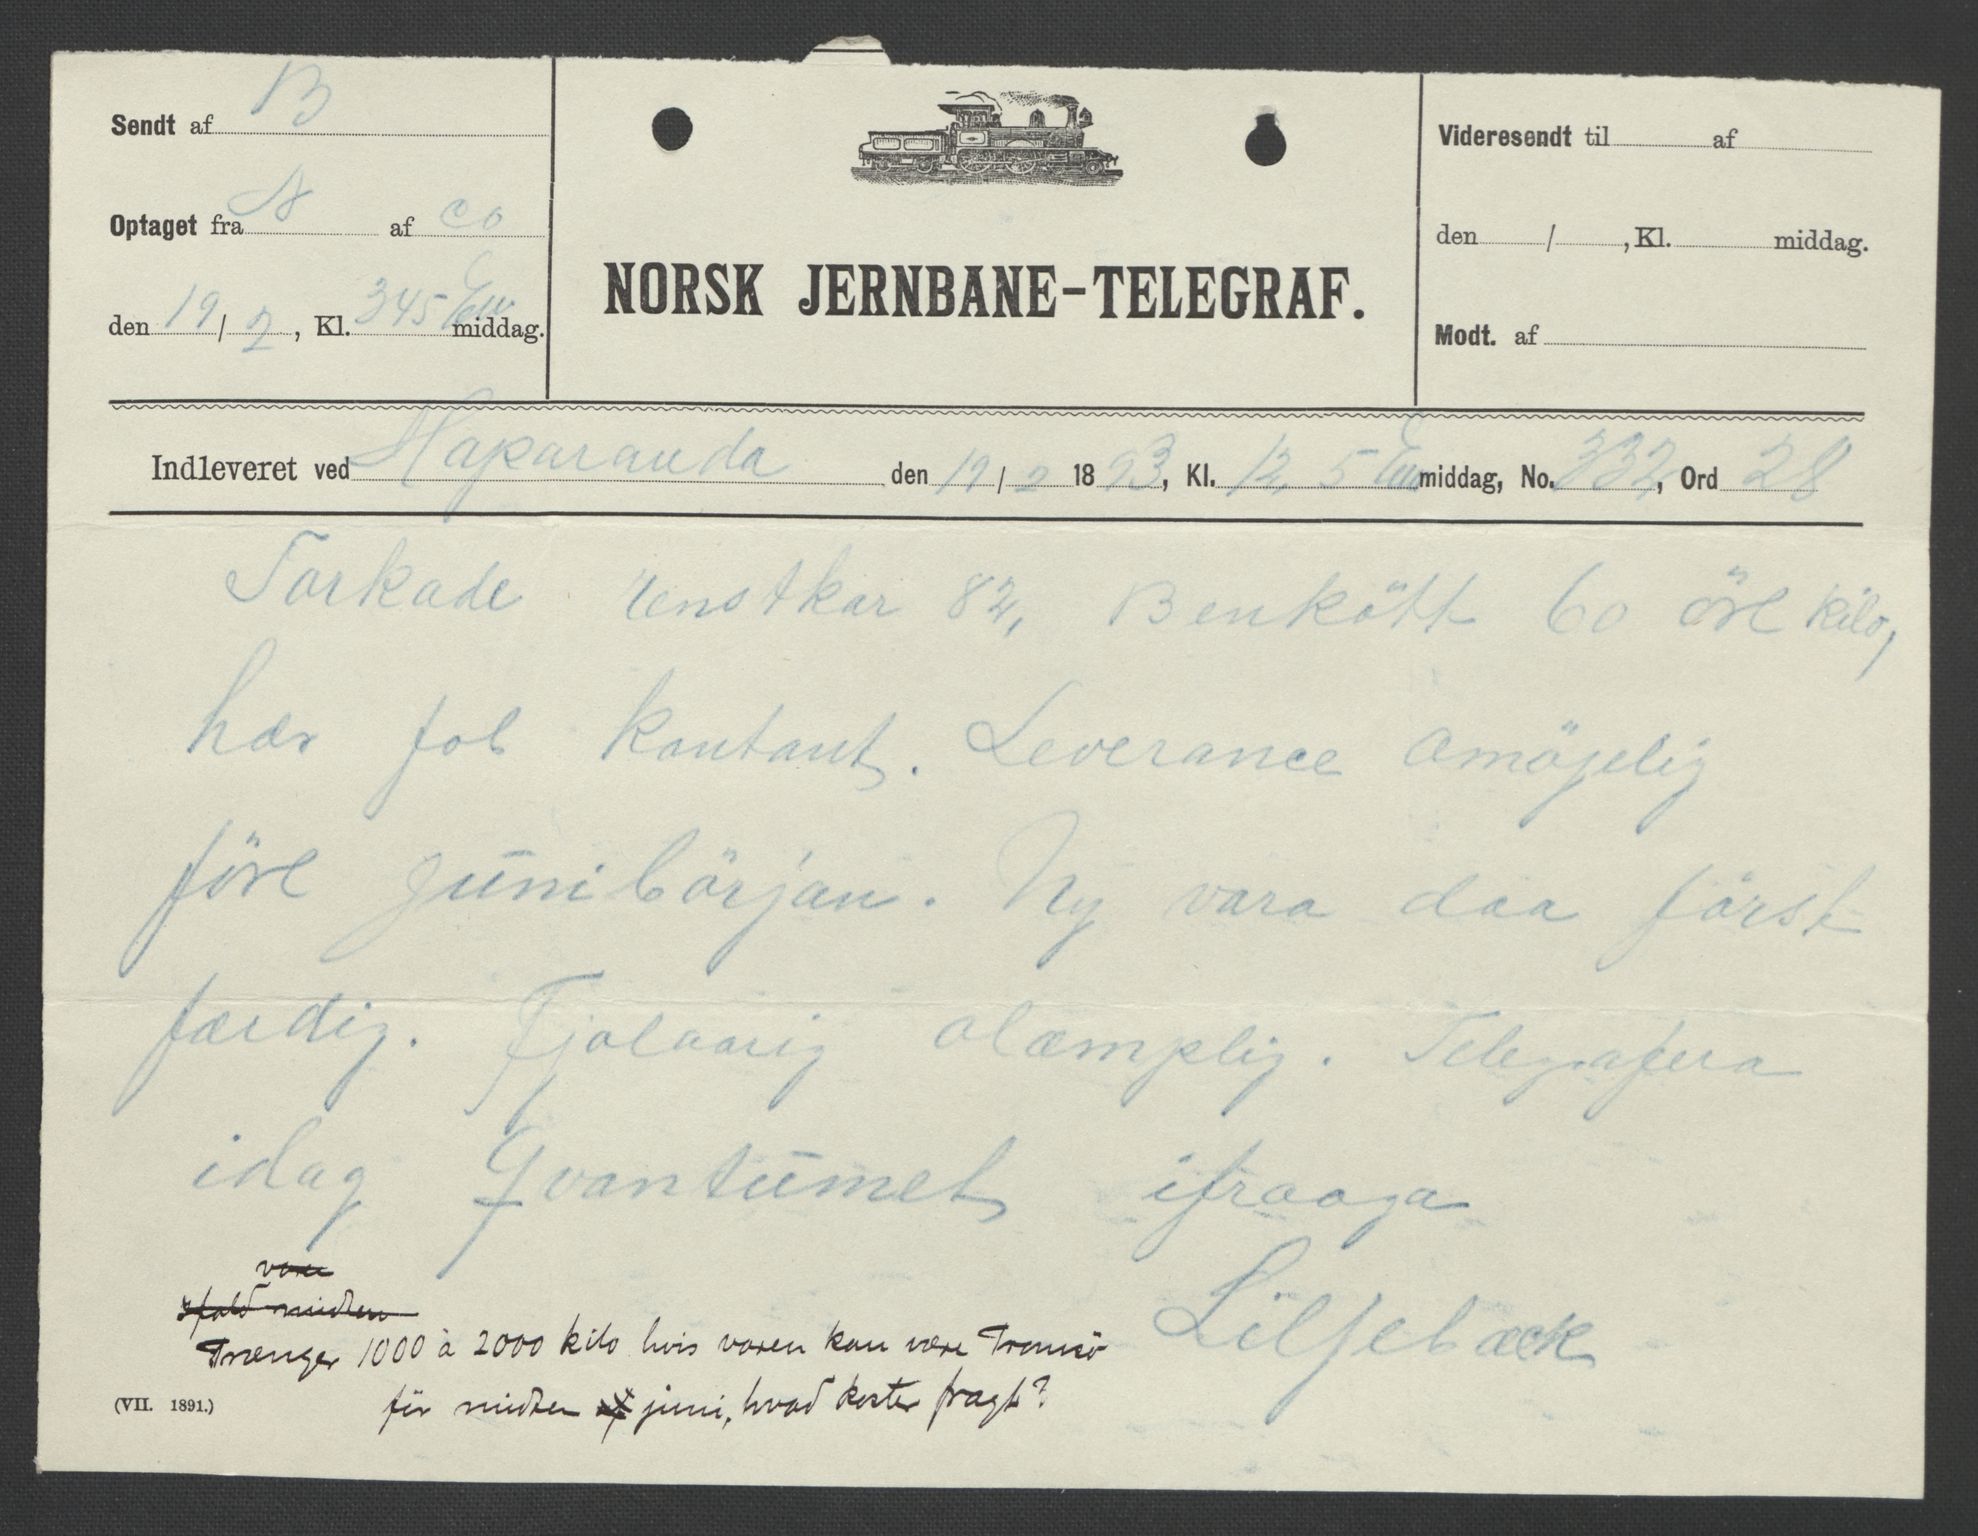 Sendt af B
Optaget fra A af co
den 19/2, Kl. 345 Em middag.
NORSK JERNBANE-TELEGRAF.
Videresendt til af
den / , Kl. middag.
Modt. af
Indleveret ved Haparanda den 19/2 1893, Kl. 12,5 Em middag, No. 332, Ord 28
Torkade renstkar 82, Benkött 60 öre kilo,
hær fob kontant. Leverance omöjelig
före junibörjan. Ny vara daa först
færdig. Fjolaarig olæmplig. Telegrafera
idag Qvantumet ifraaga
Liljebæck
vare
ifald midten
Trænger 1000 à 2000 kilo hvis varen kan være Tromsö
för midten af juni, hvad koster fragt?
(VII. 1891.)